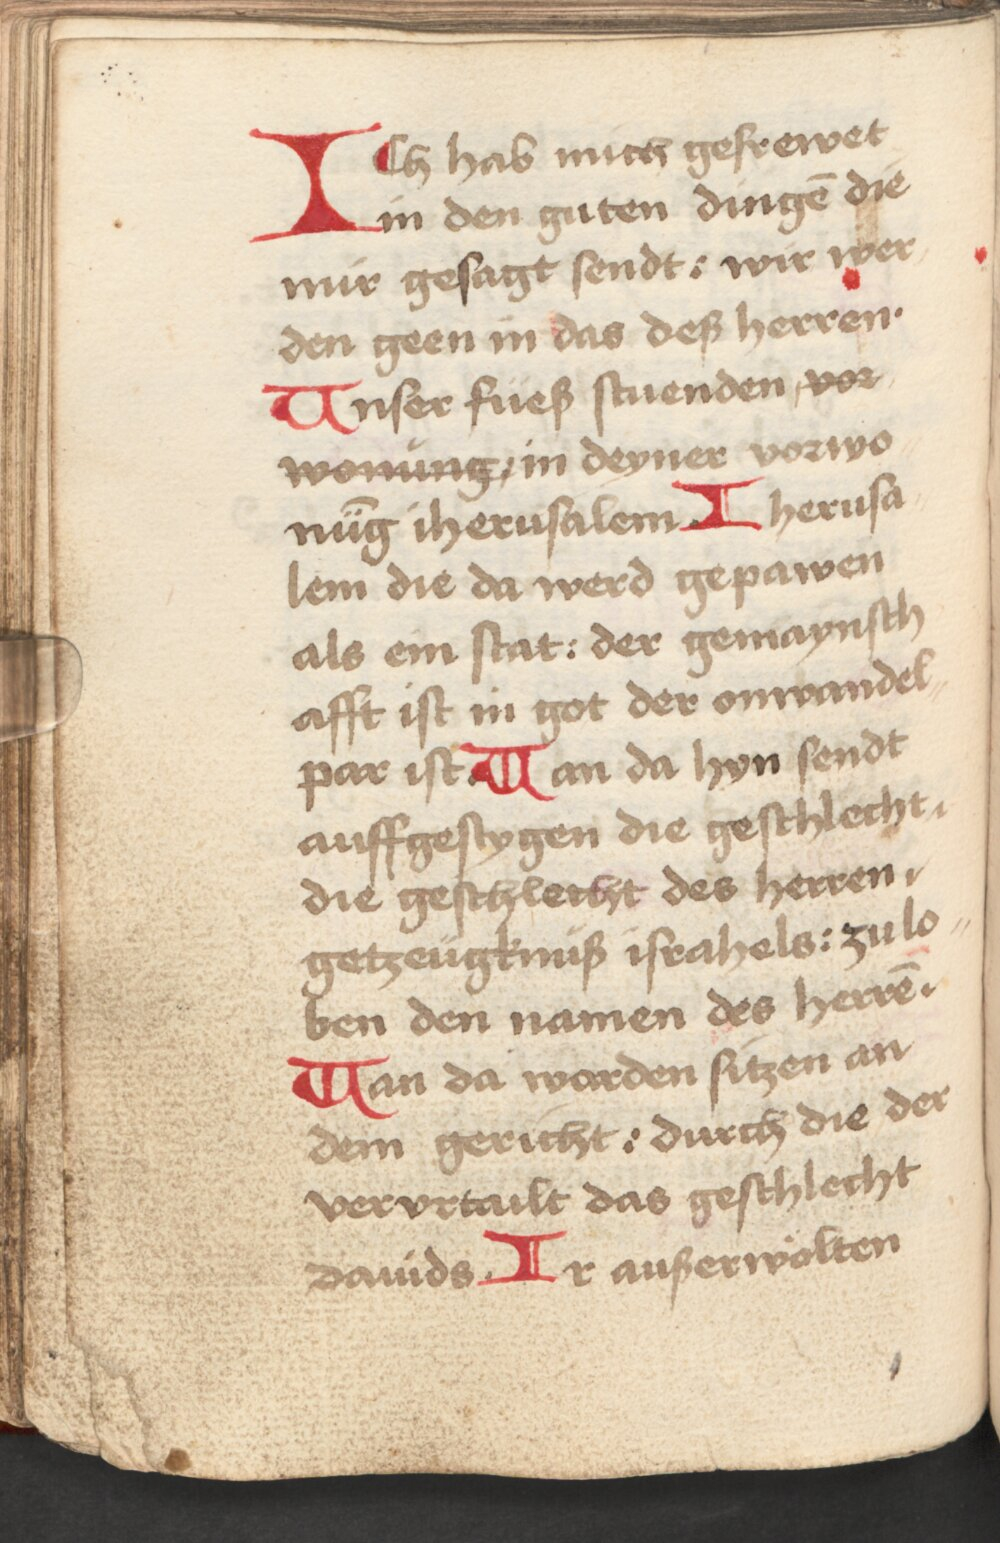 ICh hab mich gefrewet
in den guten dingē die
mir gesagt sendt: wir wer
den geen in das deß herren·
Unser fueß stuenden, vor
wonung, in deyner vorwo
nūg iherusalem. Iherusa
lem die da werd gepawen
als ein stat: der gemaynsch
afft ist in got der onwandel
par ist. Wan da hyn sendt
auffgestygen die geschlecht,
die geschlecht des herren,
getzeugknuß israhels: zu lo
ben den namen des herrē.
Wan da worden sitzen an
dem gericht: durch die der
vervrtailt das geschlecht
dauids. Ir außerwölten